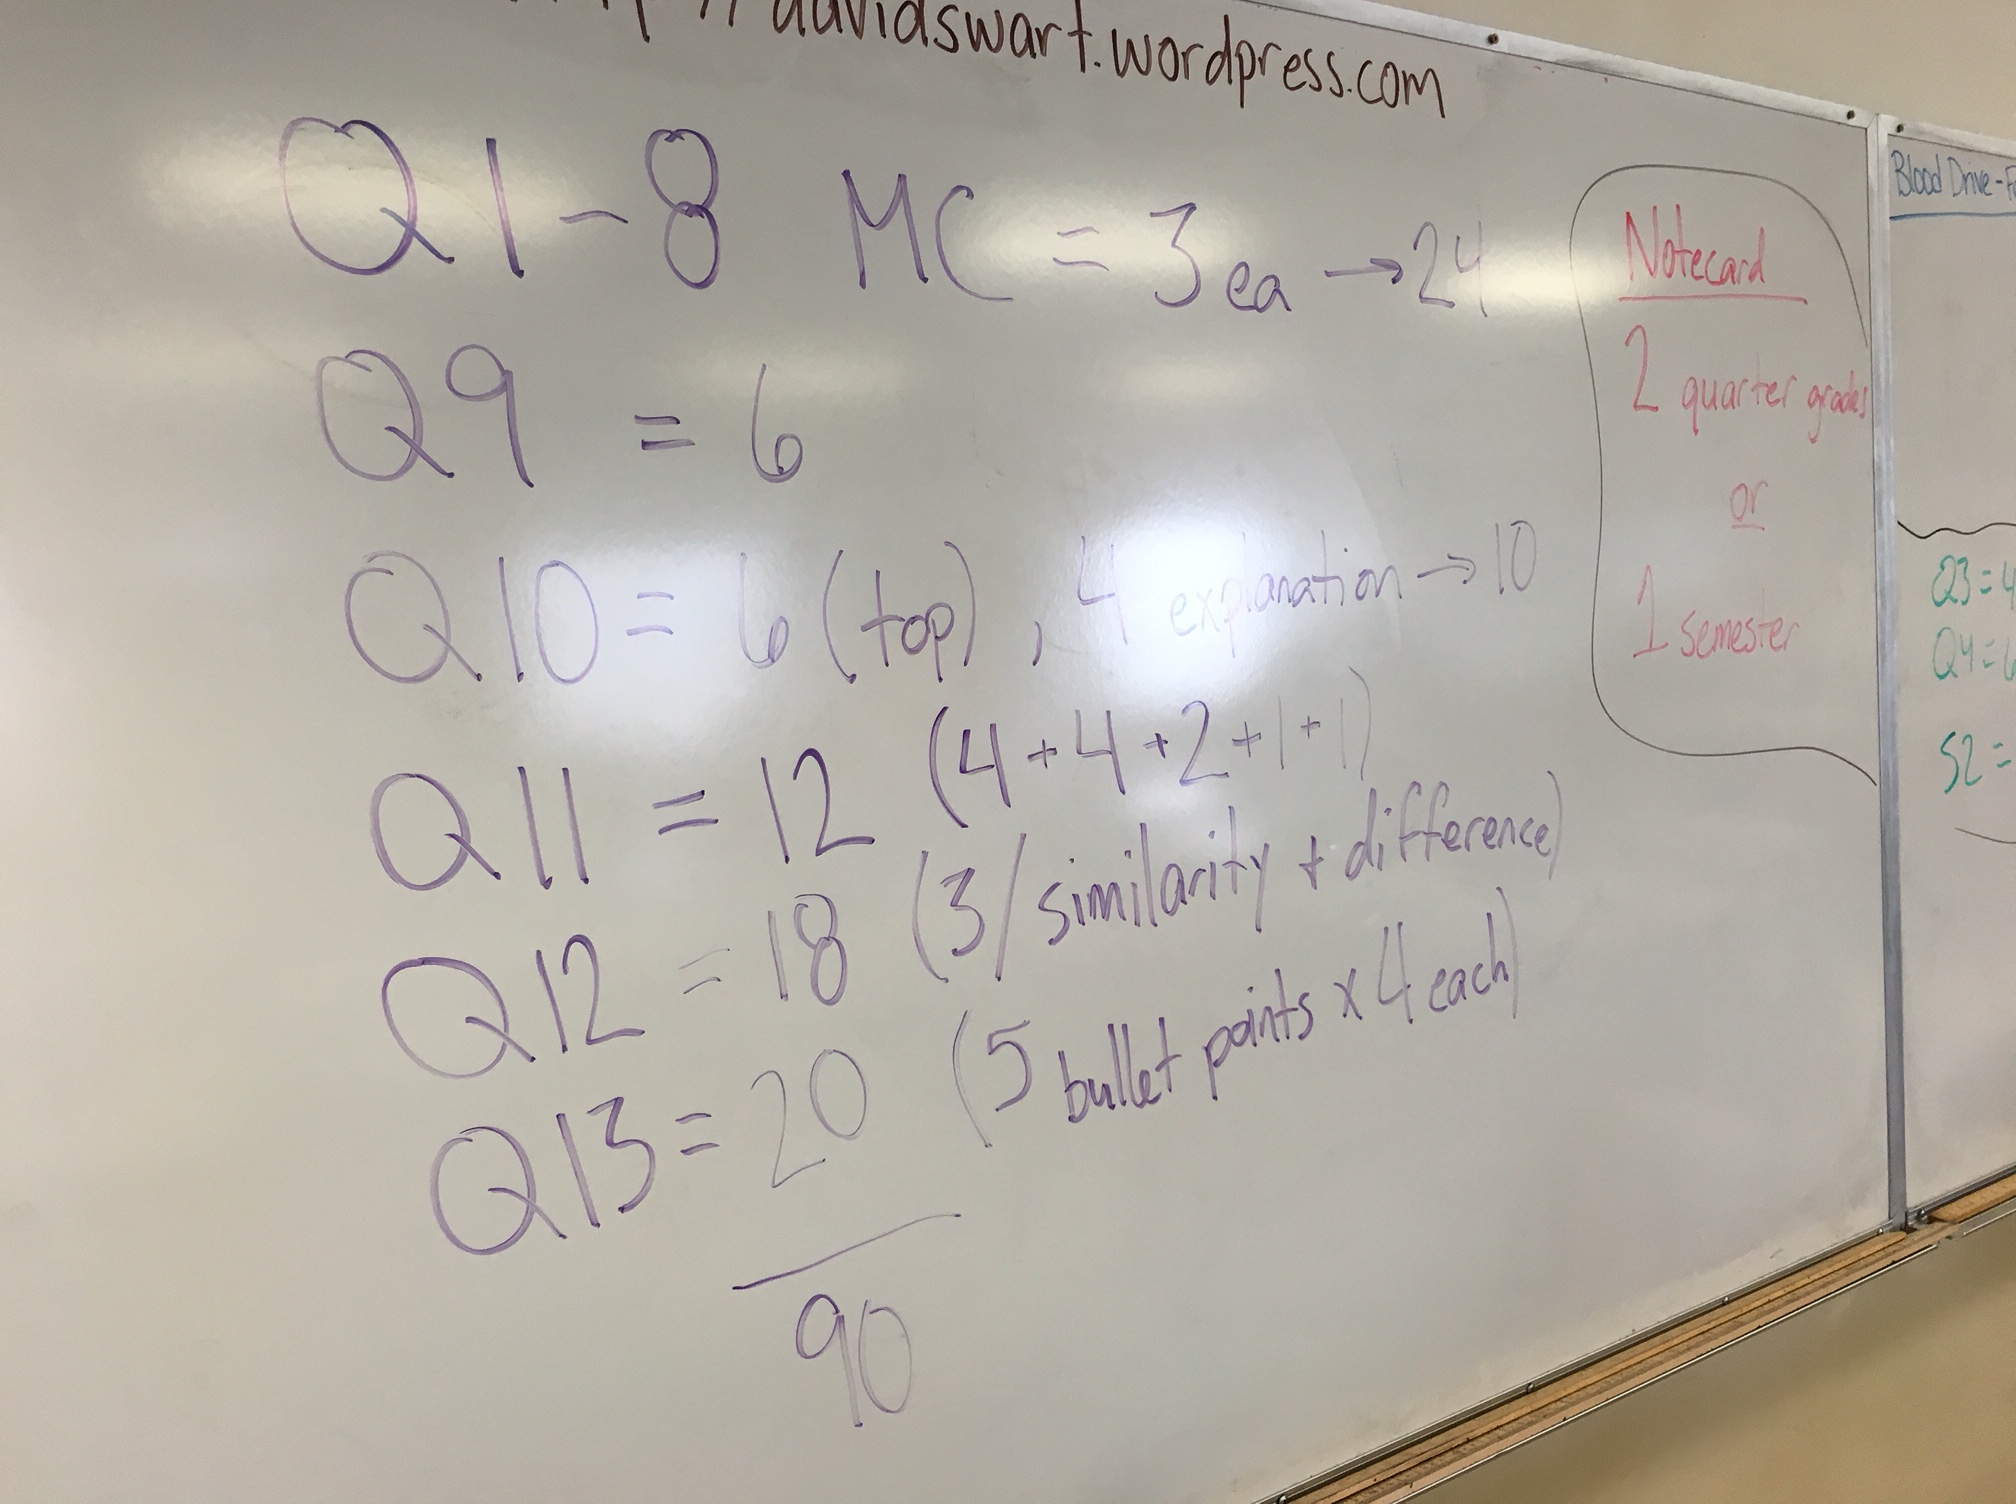 davidswart.wordpress.com
Q1-8 MC = 3 ea → 24
Q9 = 6
Q10 = 6 (top), 4 explanation → 10
Q11 = 12 (4+4+2+1+1)
Q12 = 18 (3/similarity + difference)
Q13 = 20 (5 bullet points x 4 each)
90
Notecard
2 quarter grades
or
1 semester
Blood Drive-
Q3=4
Q4=
S2=